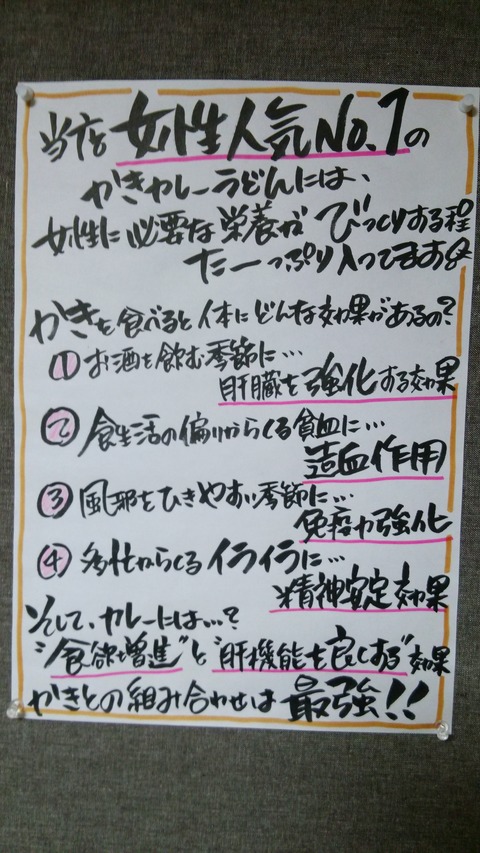 当店女性人気No.1の
かきカレーうどんには、
女性に必要な栄養が びっくりする程
たーっぷり入ってます
かきを食べると体にどんな効果があるの?
① お酒を飲む季節に…
肝臓を強化する効果
② 食生活の偏りからくる貧血に…
造血作用
③ 風邪をひきやすい季節に…
免疫力強化
④ 多忙からくるイライラに…
精神安定効果
そして、カレーには…?
"食欲増進"と"肝機能を良くする"効果
かきとの組み合わせは 最強!!